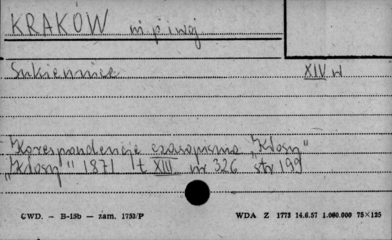 KRAKÓW m. p i woj
Sukiennice XIV w
Korespondencja czasopisma "Kłosy"
"Kłosy" 1871 t XIII nr 326 str 199
CWD. – B-15b – zam. 1753/P WDA Z 1773 14.6.57 1.000.000 75×125